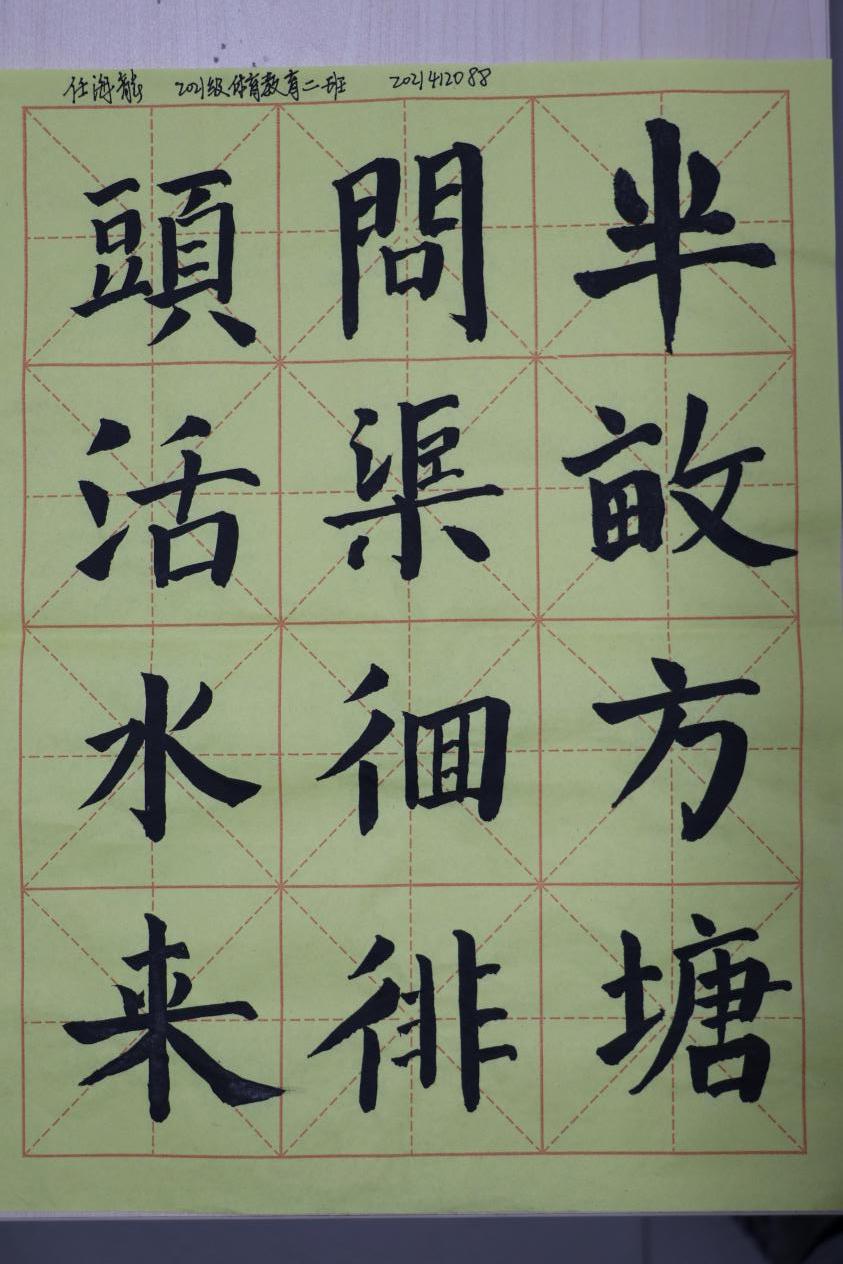 任海龍 2021级体育教育二班 2021412088
半畝方塘
問渠徊徘
頭活水来